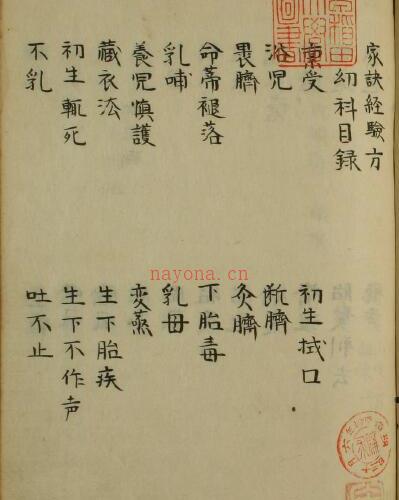 家訣経驗方
幼科目録
稟受　初生拭口
浴児　断臍
裹臍　灸臍
命蒂褪落　下胎毒
乳哺　乳母
養児慎護　変蒸
藏衣法　生下胎疾
初生輒死　生下不作声
不乳　吐不止
nayona.cn